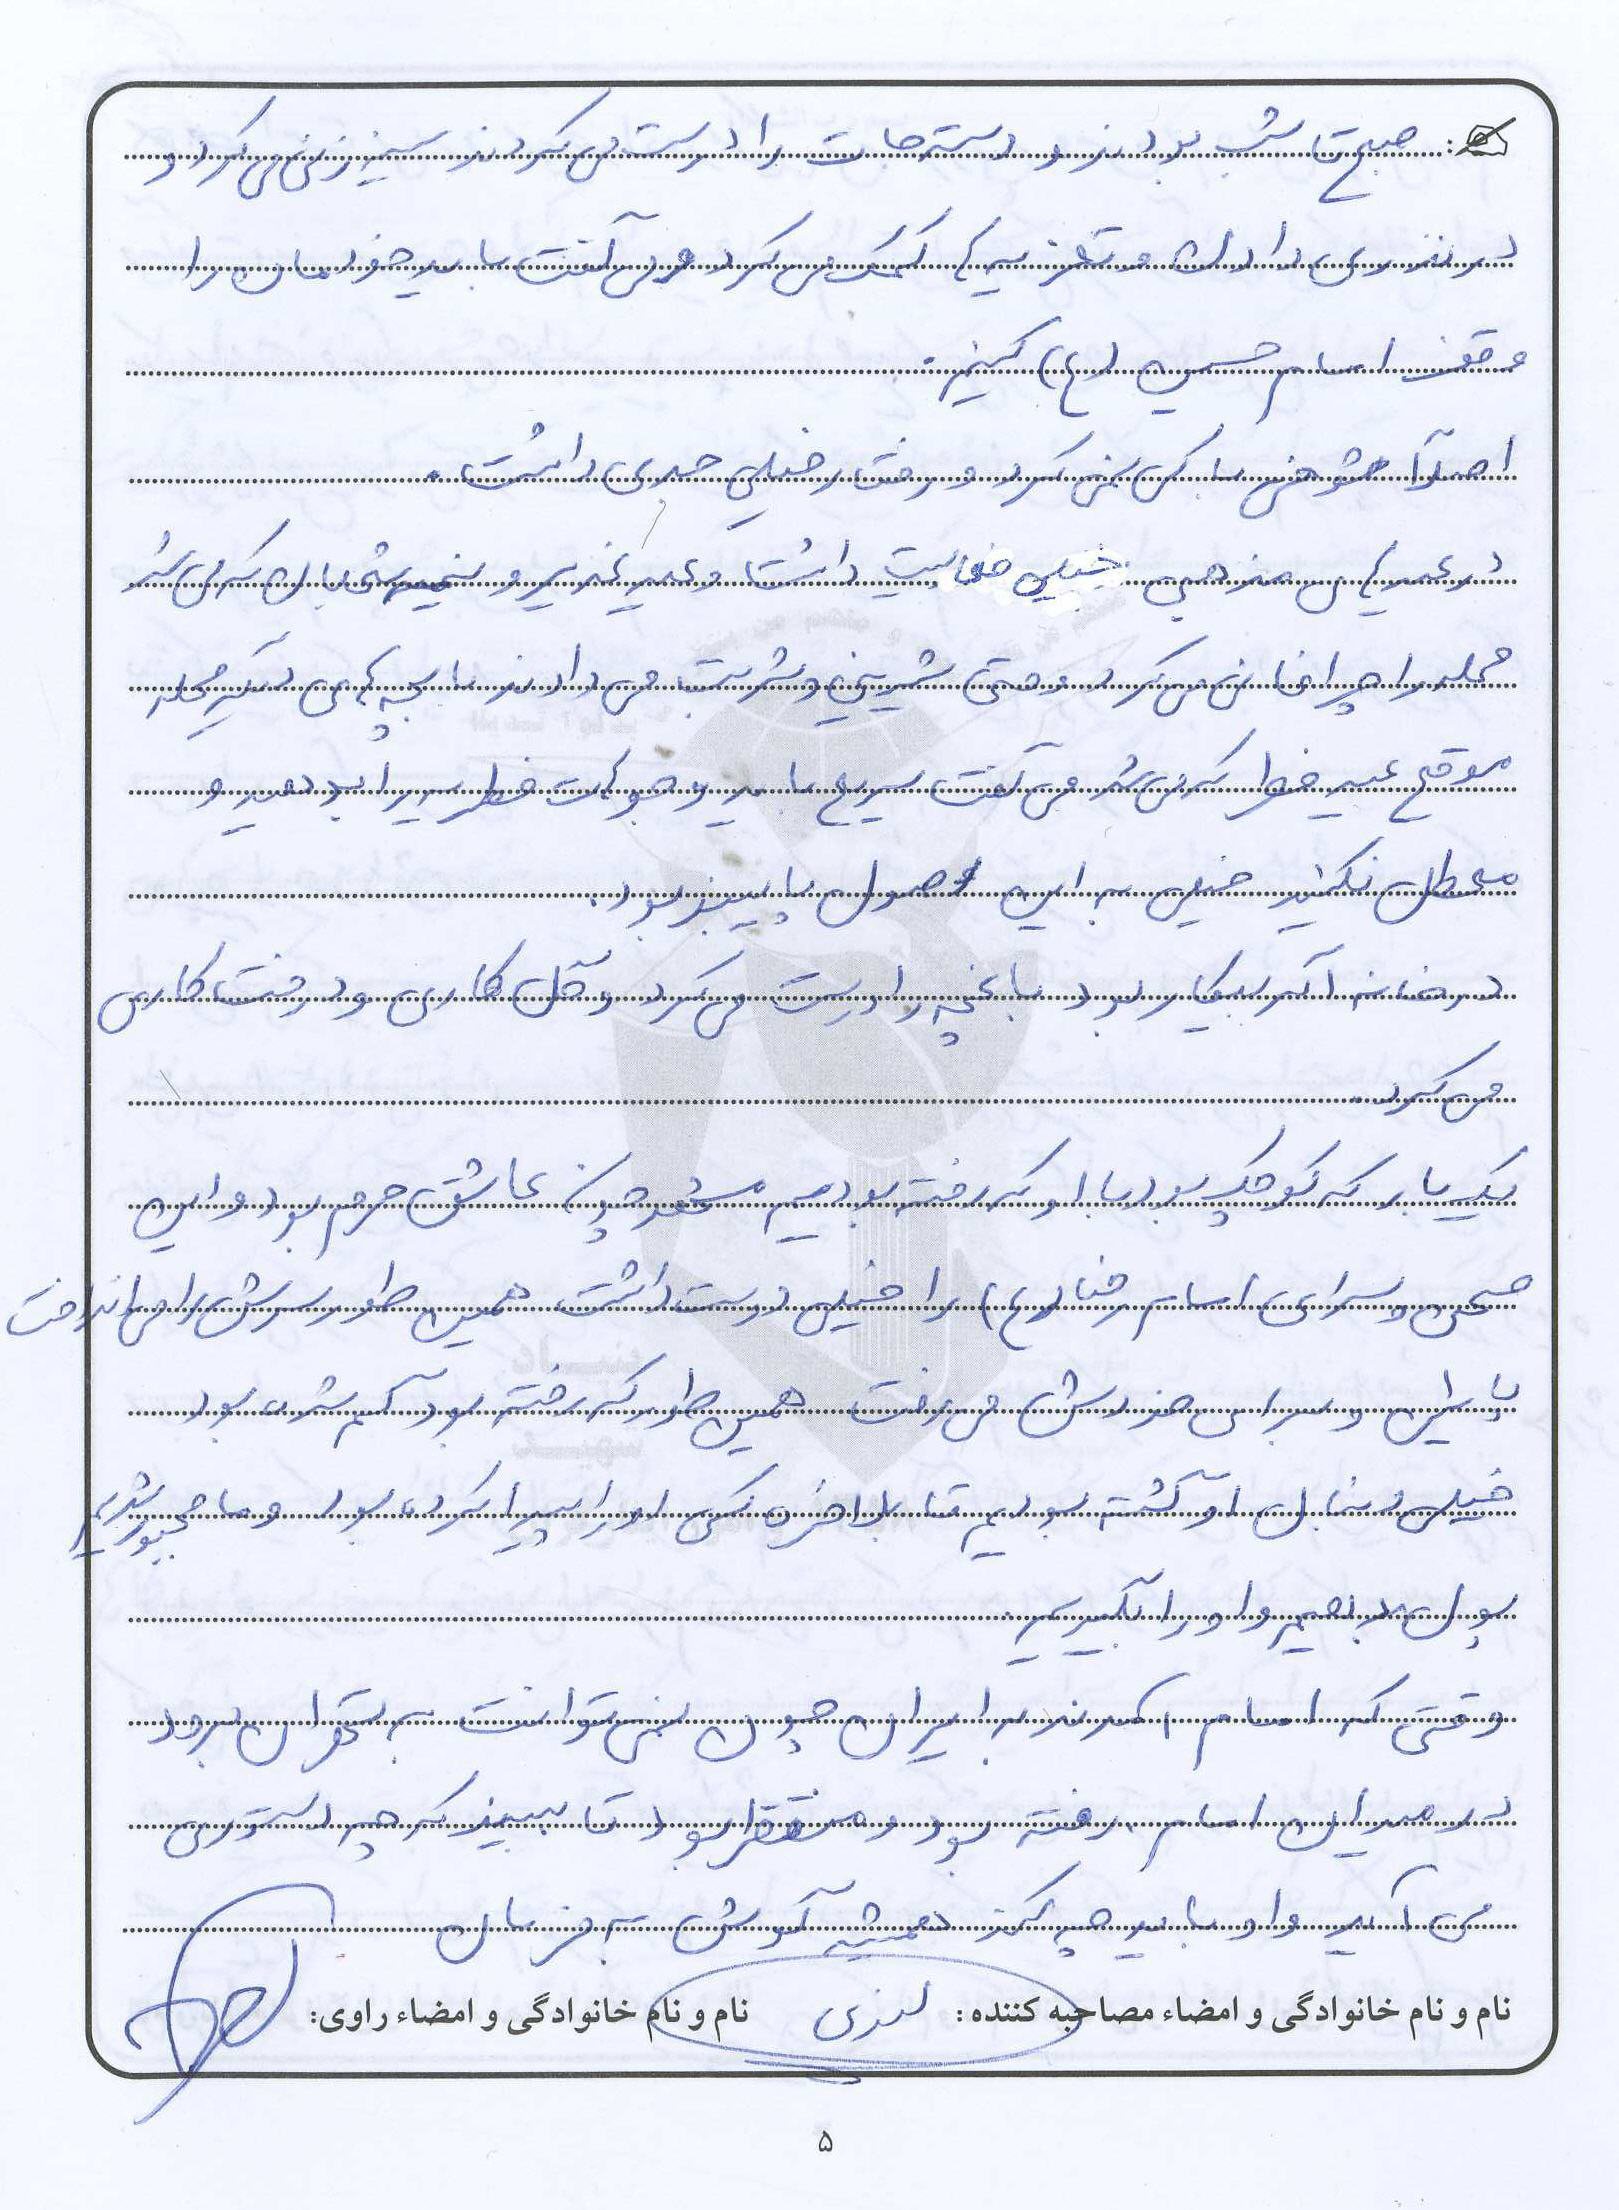 صبح تا شب بودند و دسته جات را درست می کردند سینه زنی می کرد و
در نذری دادن و تعزیه ها کمک می کرد و می گفت باید خودمان را
وقف امام حسین (ع) کنیم.
اصلاً شوخی با کسی نمی کرد و رفتار خیلی جدی داشت.
در عیدهای مذهبی خیلی فعالیت داشت و عید غدیر و نیمه شعبان که می شد
محله را چراغانی می کرد و حتی شیرینی و شربت می دادند با بچه های دیگر محله
موقع عید فطر که می شد می گفت سریع باید وجوهات فطریه را بدهید و
معطل نکنید خیلی به این اصول پایبند بود.
در خانه اگر بیکار بود باغچه را درست می کرد و گل کاری و درخت کاری
می کرد.
یک بار که کوچک بود با او که رفته بودیم مشهد چون عاشق حرم بود و این
صحن و سرای امام رضا (ع) را خیلی دوست داشت همین طور سرش را می انداخت
پایین و برای خودش می رفت همین طور که رفته بود گم شده بود
خیلی دنبال او گشته بودیم تا بلاخره کسی او را پیدا کرده بود و ما مجبور شدیم
پول بدهیم و او را بگیریم.
وقتی که امام آمدند به ایران چون نمی توانست به تهران برود
در میدان امام رفته بود و منتظر بود تا ببیند که چه دستوری
می آید و او باید چه کند همیشه گوش به فرمان
نام و نام خانوادگی و امضاء مصاحبه کننده: نام و نام خانوادگی و امضاء راوی:
۵